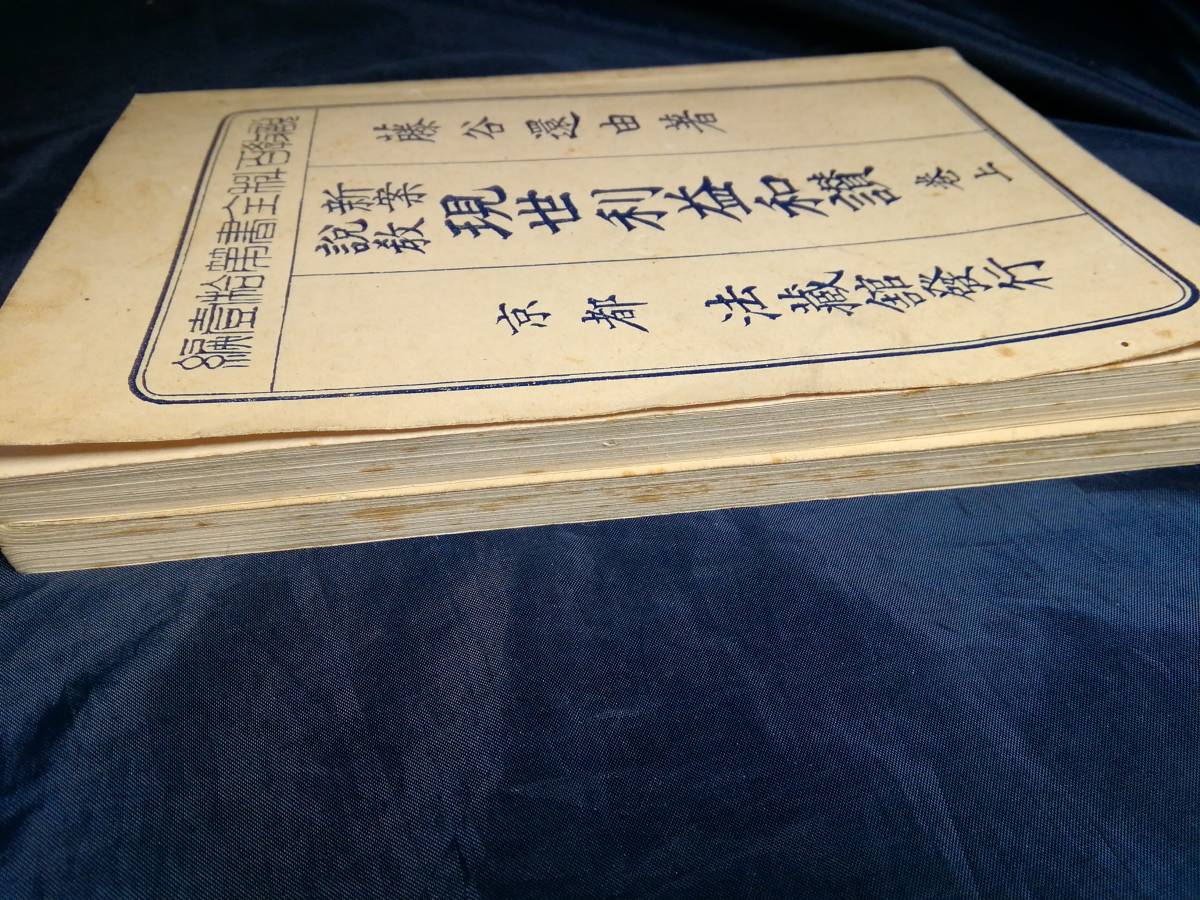 説教百科全書第拾壹編
藤谷還由著
新案説教 現世利益和讃 卷上
京都 法藏館發行